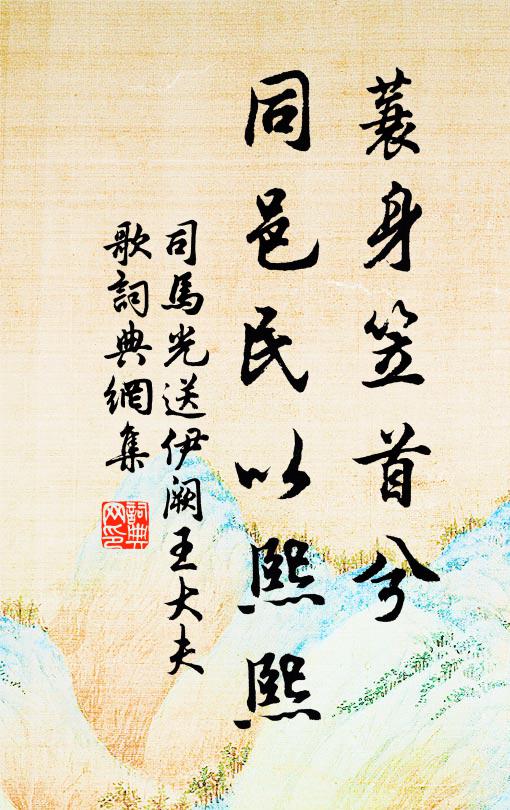 蓑身笠首兮
同邑民以熙熙
司馬光送伊阙王大夫
歌詞典網集
詞典
网印